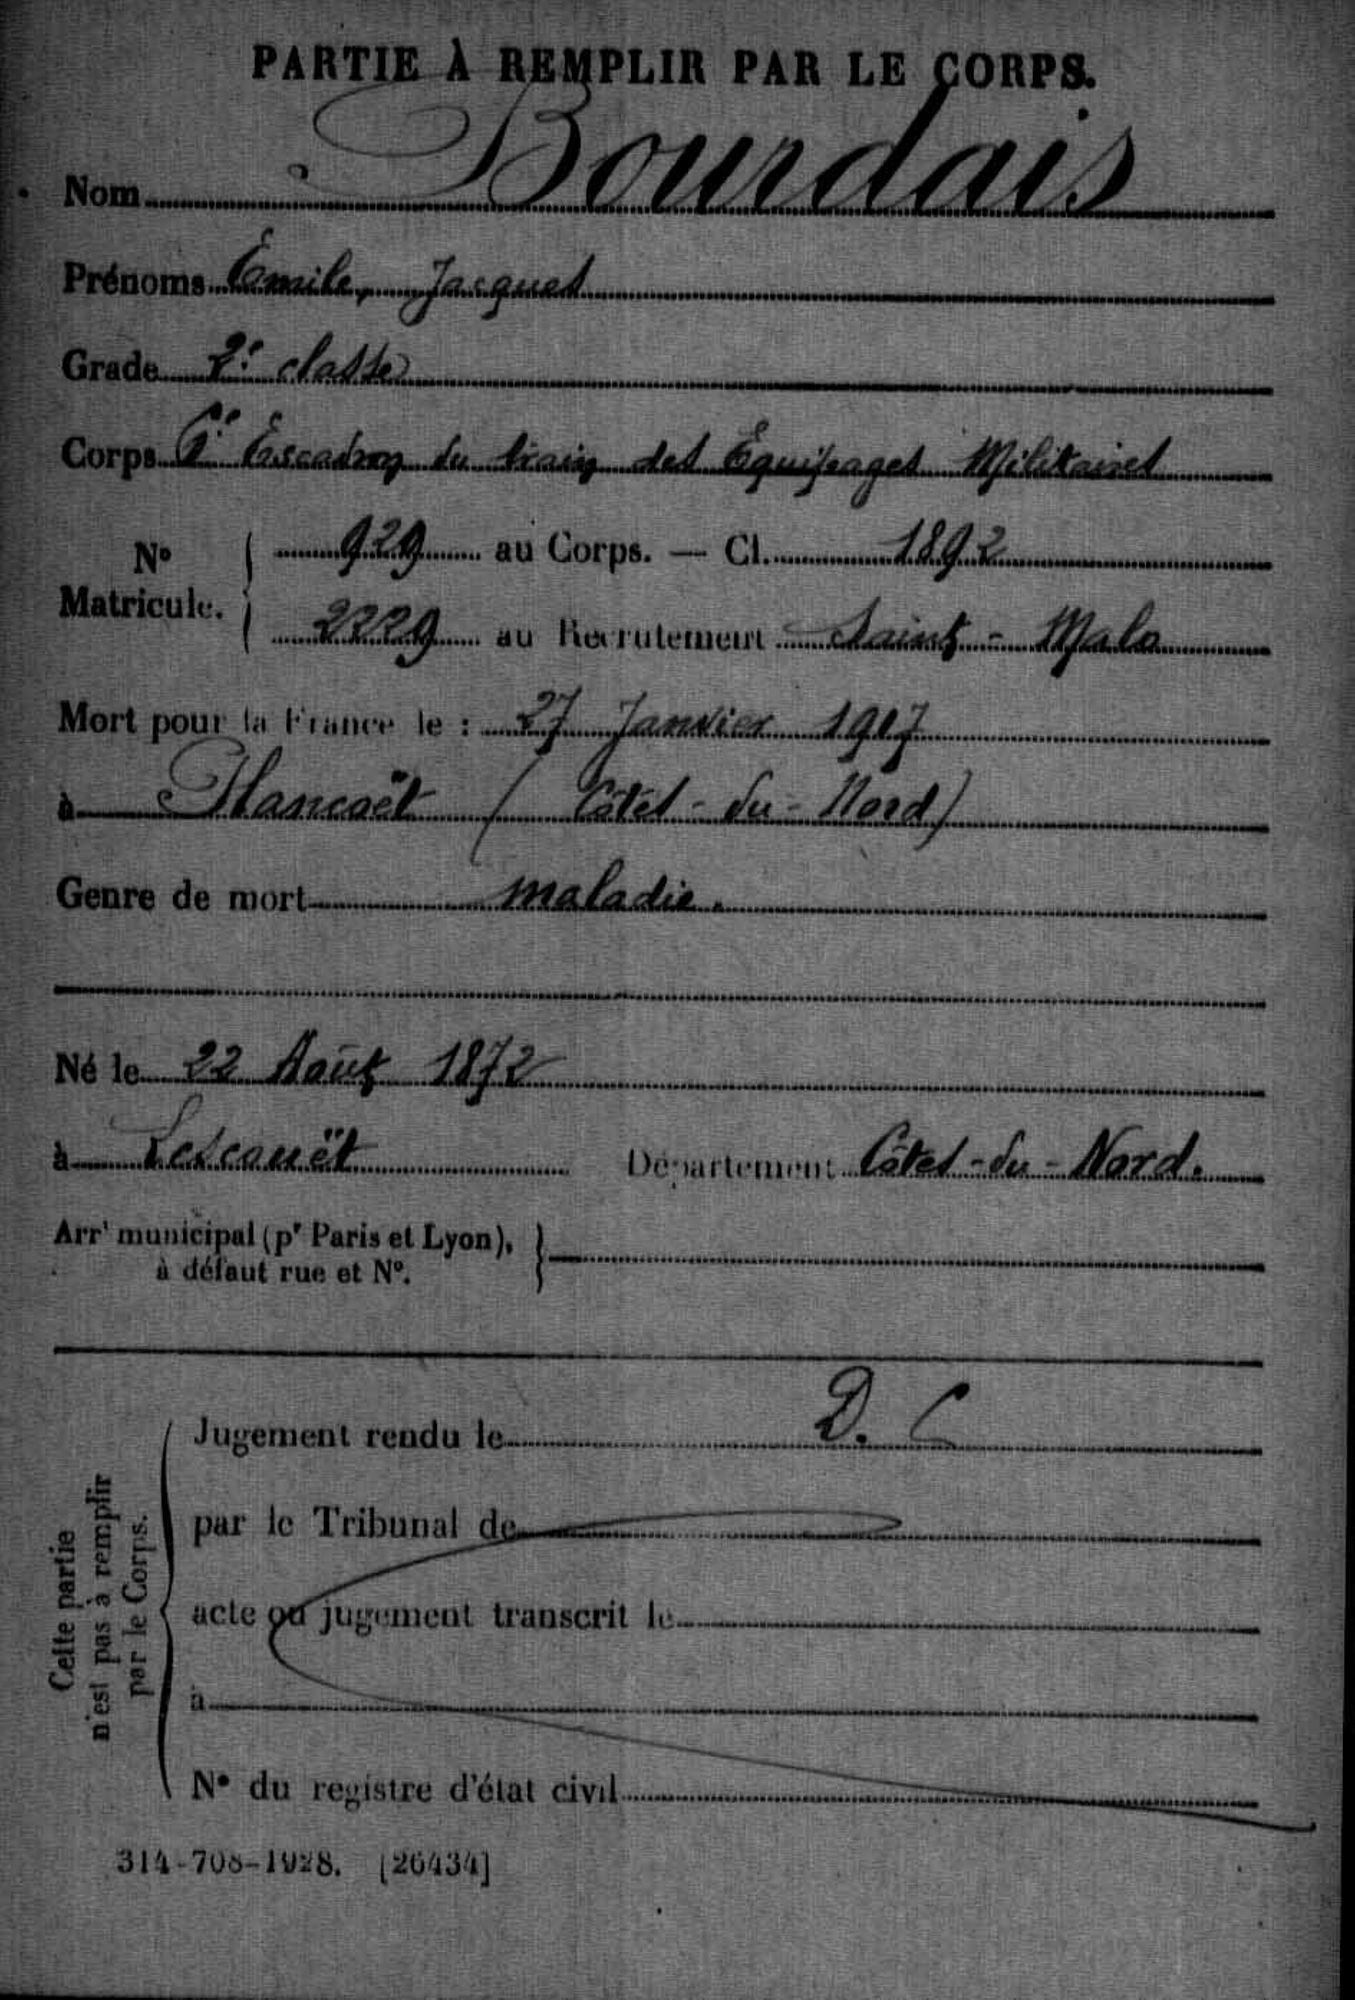 PARTIE À REMPLIR PAR LE CORPS.
Nom Bourdais
Prénoms Émile, Jacques
Grade 2e classe
Corps Escadron du train des Équipages Militaires
No Matricule. 929 au Corps. — Cl. 1892
2229 au Recrutement Saint-Malo
Mort pour la France le : 27 Janvier 1917
à Plancoët (Côtes-du-Nord)
Genre de mort maladie.
Né le 22 Août 1872
à Lescouët Département Côtes-du-Nord.
Arrt municipal (pr Paris et Lyon),
à défaut rue et No.
Cette partie
n'est pas à remplir
par le Corps.
Jugement rendu le D. C
par le Tribunal de
acte ou jugement transcrit le
à
No du registre d'état civil
314-708-1928. [26434]